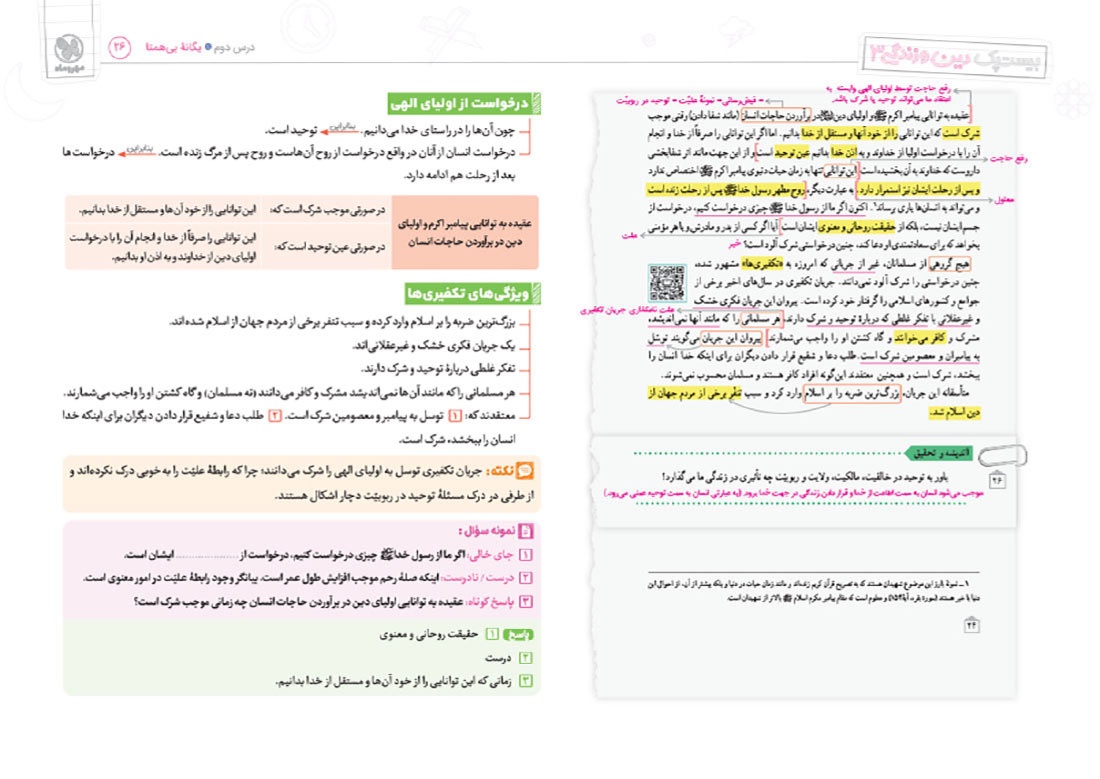 بیست‌پک دین و زندگی ۳
درس دوم • یگانهٔ بی‌همتا ۲۶
مهروماه
رفع حاجت توسط اولیای الهی وابسته به
اعتقاد ما می‌تواند توحید یا شرک باشد.
- فیض‌رسانی - نمونهٔ علیّت - توحید در ربوبیّت
عقیده به توانایی پیامبر اکرم ﷺ و اولیای دین در برآوردن حاجات انسان (مانند شفا دادن) وقتی موجب
شرک است که این توانایی را از خود آنها و مستقل از خدا بدانیم. اما اگر این توانایی را صرفاً از خدا و انجام
آن را با درخواست اولیا از خداوند و به اذن خدا بدانیم عین توحید است و از این جهت مانند اثر شفابخشی
رفع حاجت
داروست که خداوند به آن بخشیده است. این توانایی تنها به زمان حیات دنیوی پیامبر اکرم ﷺ اختصاص ندارد
و پس از رحلت ایشان نیز استمرار دارد. به عبارت دیگر، روح مطهر رسول خدا ﷺ پس از رحلت زنده است
معلول
و می‌تواند به انسان‌ها یاری برساند.۱ اکنون اگر ما از رسول خدا ﷺ چیزی درخواست کنیم، درخواست از
جسم ایشان نیست، بلکه از حقیقت روحانی و معنوی ایشان است. آیا اگر کسی از پدر و مادرش و یا هر مؤمنی
علت
بخواهد که برای سعادتمندی او دعا کند، چنین درخواستی شرک آلود است؟ خیر
هیچ گروهی از مسلمانان، غیر از جریانی که امروزه به «تکفیری‌ها» مشهور شده،
چنین درخواستی را شرک آلود نمی‌دانند. جریان تکفیری در سال‌های اخیر برخی از
جوامع و کشورهای اسلامی را گرفتار خود کرده است. پیروان این جریان فکری خشک
علت نامگذاری جریان تکفیری
و غیرعقلانی با تفکر غلطی که دربارهٔ توحید و شرک دارند، هر مسلمانی را که مانند آنها نمی‌اندیشد،
مشرک و کافر می‌خوانند و گاه کشتن او را واجب می‌شمارند. پیروان این جریان می‌گویند توسل
به پیامبران و معصومین شرک است. طلب دعا و شفیع قرار دادن دیگران برای اینکه خدا انسان را
ببخشد، شرک است و همچنین معتقدند این‌گونه افراد کافر هستند و مسلمان محسوب نمی‌شوند.
متأسفانه این جریان، بزرگ‌ترین ضربه را بر اسلام وارد کرد و سبب تنفر برخی از مردم جهان از
دین اسلام شد.
اندیشه و تحقیق
۲۶
باور به توحید در خالقیت، مالکیت، ولایت و ربوبیّت چه تأثیری در زندگی ما می‌گذارد؟
موجب می‌شود انسان به سمت اطاعت از خدا و قرار دادن زندگی در جهت خدا برود. (به عبارتی انسان به سمت توحید عملی می‌رود.)
۱ـ نمونهٔ بارز این موضوع شهیدان هستند که به تصریح قرآن کریم زنده‌اند و مانند زمان حیات در دنیا و بلکه بیشتر از آن، از احوال این
دنیا با خبر هستند (سورهٔ بقره، آیهٔ ۱۵۴) و معلوم است که مقام پیامبر مکرم اسلام ﷺ بالاتر از شهیدان است.
۲۴
درخواست از اولیای الهی
چون آن‌ها را در راستای خدا می‌دانیم. بنابراین توحید است.
درخواست انسان از آنان در واقع درخواست از روح آن‌هاست و روح پس از مرگ زنده است. بنابراین درخواست ها
بعد از رحلت هم ادامه دارد.
عقیده به توانایی پیامبر اکرم و اولیای دین در برآوردن حاجات انسان
در صورتی موجب شرک است که: این توانایی را از خود آن‌ها و مستقل از خدا بدانیم.
در صورتی عین توحید است که: این توانایی را صرفاً از خدا و انجام آن را با درخواست
اولیای دین از خداوند و به اذن او بدانیم.
ویژگی‌های تکفیری‌ها
بزرگ‌ترین ضربه را بر اسلام وارد کرده و سبب تنفر برخی از مردم جهان از اسلام شده‌اند.
یک جریان فکری خشک و غیرعقلانی‌اند.
تفکر غلطی دربارهٔ توحید و شرک دارند.
هر مسلمانی را که مانند آن‌ها نمی‌اندیشد مشرک و کافر می‌دانند (نه مسلمان) و گاه کشتن او را واجب می‌شمارند.
معتقدند که: ۱ توسل به پیامبر و معصومین شرک است. ۲ طلب دعا و شفیع قرار دادن دیگران برای اینکه خدا
انسان را ببخشد، شرک است.
نکته: جریان تکفیری توسل به اولیای الهی را شرک می‌دانند؛ چرا که رابطهٔ علیّت را به خوبی درک نکرده‌اند و
از طرفی در درک مسئلهٔ توحید در ربوبیّت دچار اشکال هستند.
نمونه سؤال:
۱ جای خالی: اگر ما از رسول خدا ﷺ چیزی درخواست کنیم، درخواست از .................... ایشان است.
۲ درست / نادرست: اینکه صلهٔ رحم موجب افزایش طول عمر است، بیانگر وجود رابطهٔ علیّت در امور معنوی است.
۳ پاسخ کوتاه: عقیده به توانایی اولیای دین در برآوردن حاجات انسان چه زمانی موجب شرک است؟
پاسخ ۱ حقیقت روحانی و معنوی
۲ درست
۳ زمانی که این توانایی را از خود آن‌ها و مستقل از خدا بدانیم.